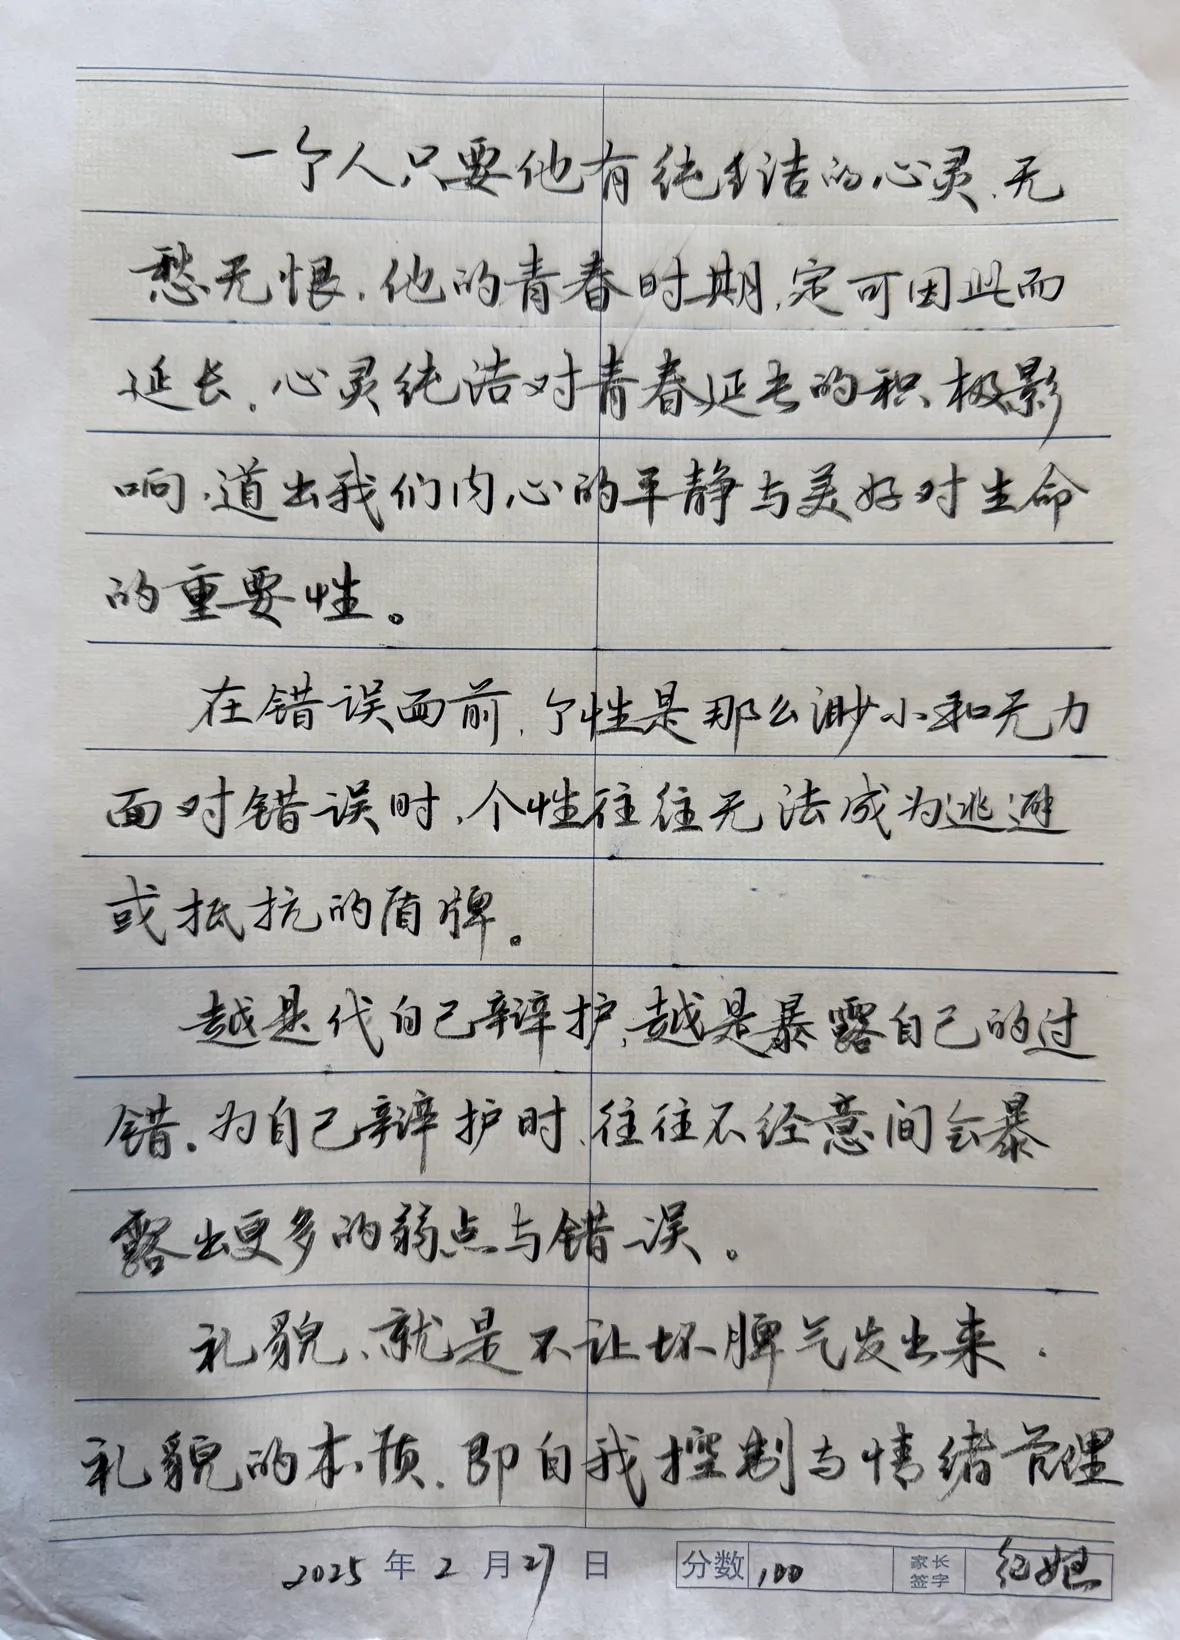 一个人只要他有纯洁的心灵、无
愁无恨,他的青春时期,定可因此而
延长。心灵纯洁对青春延长的积极影
响,道出我们内心的平静与美好对生命
的重要性。
在错误面前,个性是那么渺小和无力
面对错误时,个性往往无法成为逃避
或抵抗的盾牌。
越是代自己辩护,越是暴露自己的过
错。为自己辩护时、往往不经意间会暴
露出更多的弱点与错误。
礼貌、就是不让坏脾气发出来.
礼貌的本质,即自我控制与情绪管理
2025年2月27日 分数 100 家长签字